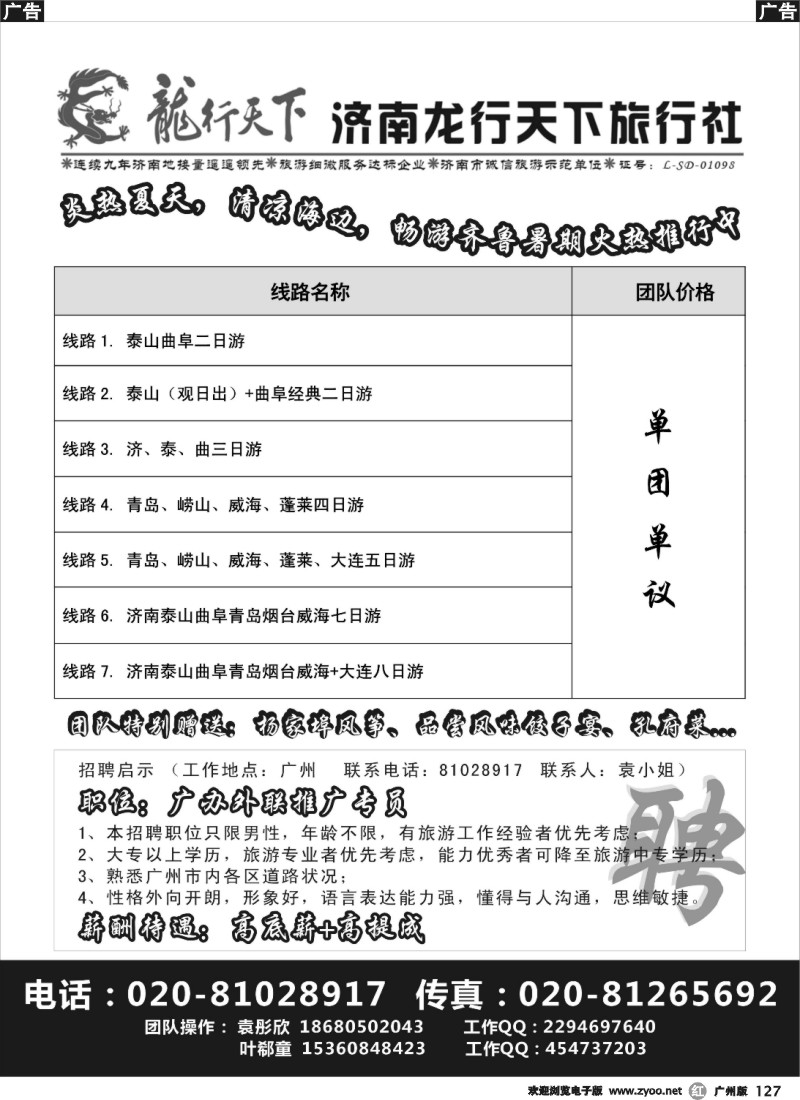 广告
广告
龍行天下 济南龙行天下旅行社
※连续九年济南地接量遥遥领先※旅游细微服务达标企业※济南市诚信旅游示范单位※证号：L-SD-01098
炎热夏天，清凉海边，畅游齐鲁暑期火热推行中
线路名称 团队价格
线路 1. 泰山曲阜二日游
线路 2. 泰山（观日出）+曲阜经典二日游
线路 3. 济、泰、曲三日游
线路 4. 青岛、崂山、威海、蓬莱四日游
线路 5. 青岛、崂山、威海、蓬莱、大连五日游
线路 6. 济南泰山曲阜青岛烟台威海七日游
线路 7. 济南泰山曲阜青岛烟台威海+大连八日游
单团单议
团队特别赠送：杨家埠风筝、品尝风味饺子宴、孔府菜...
招聘启示 （工作地点：广州 联系电话：81028917 联系人：袁小姐）
职位：广办外联推广专员
1、本招聘职位只限男性，年龄不限，有旅游工作经验者优先考虑；
2、大专以上学历，旅游专业者优先考虑，能力优秀者可降至旅游中专学历；
3、熟悉广州市内各区道路状况；
4、性格外向开朗，形象好，语言表达能力强，懂得与人沟通，思维敏捷。
薪酬待遇：高底薪+高提成
聘
电话：020-81028917 传真：020-81265692
团队操作：袁彤欣 18680502043 工作QQ：2294697640
叶郗童 15360848423 工作QQ：454737203
欢迎浏览电子版 www.zyoo.net 红 广州版 127